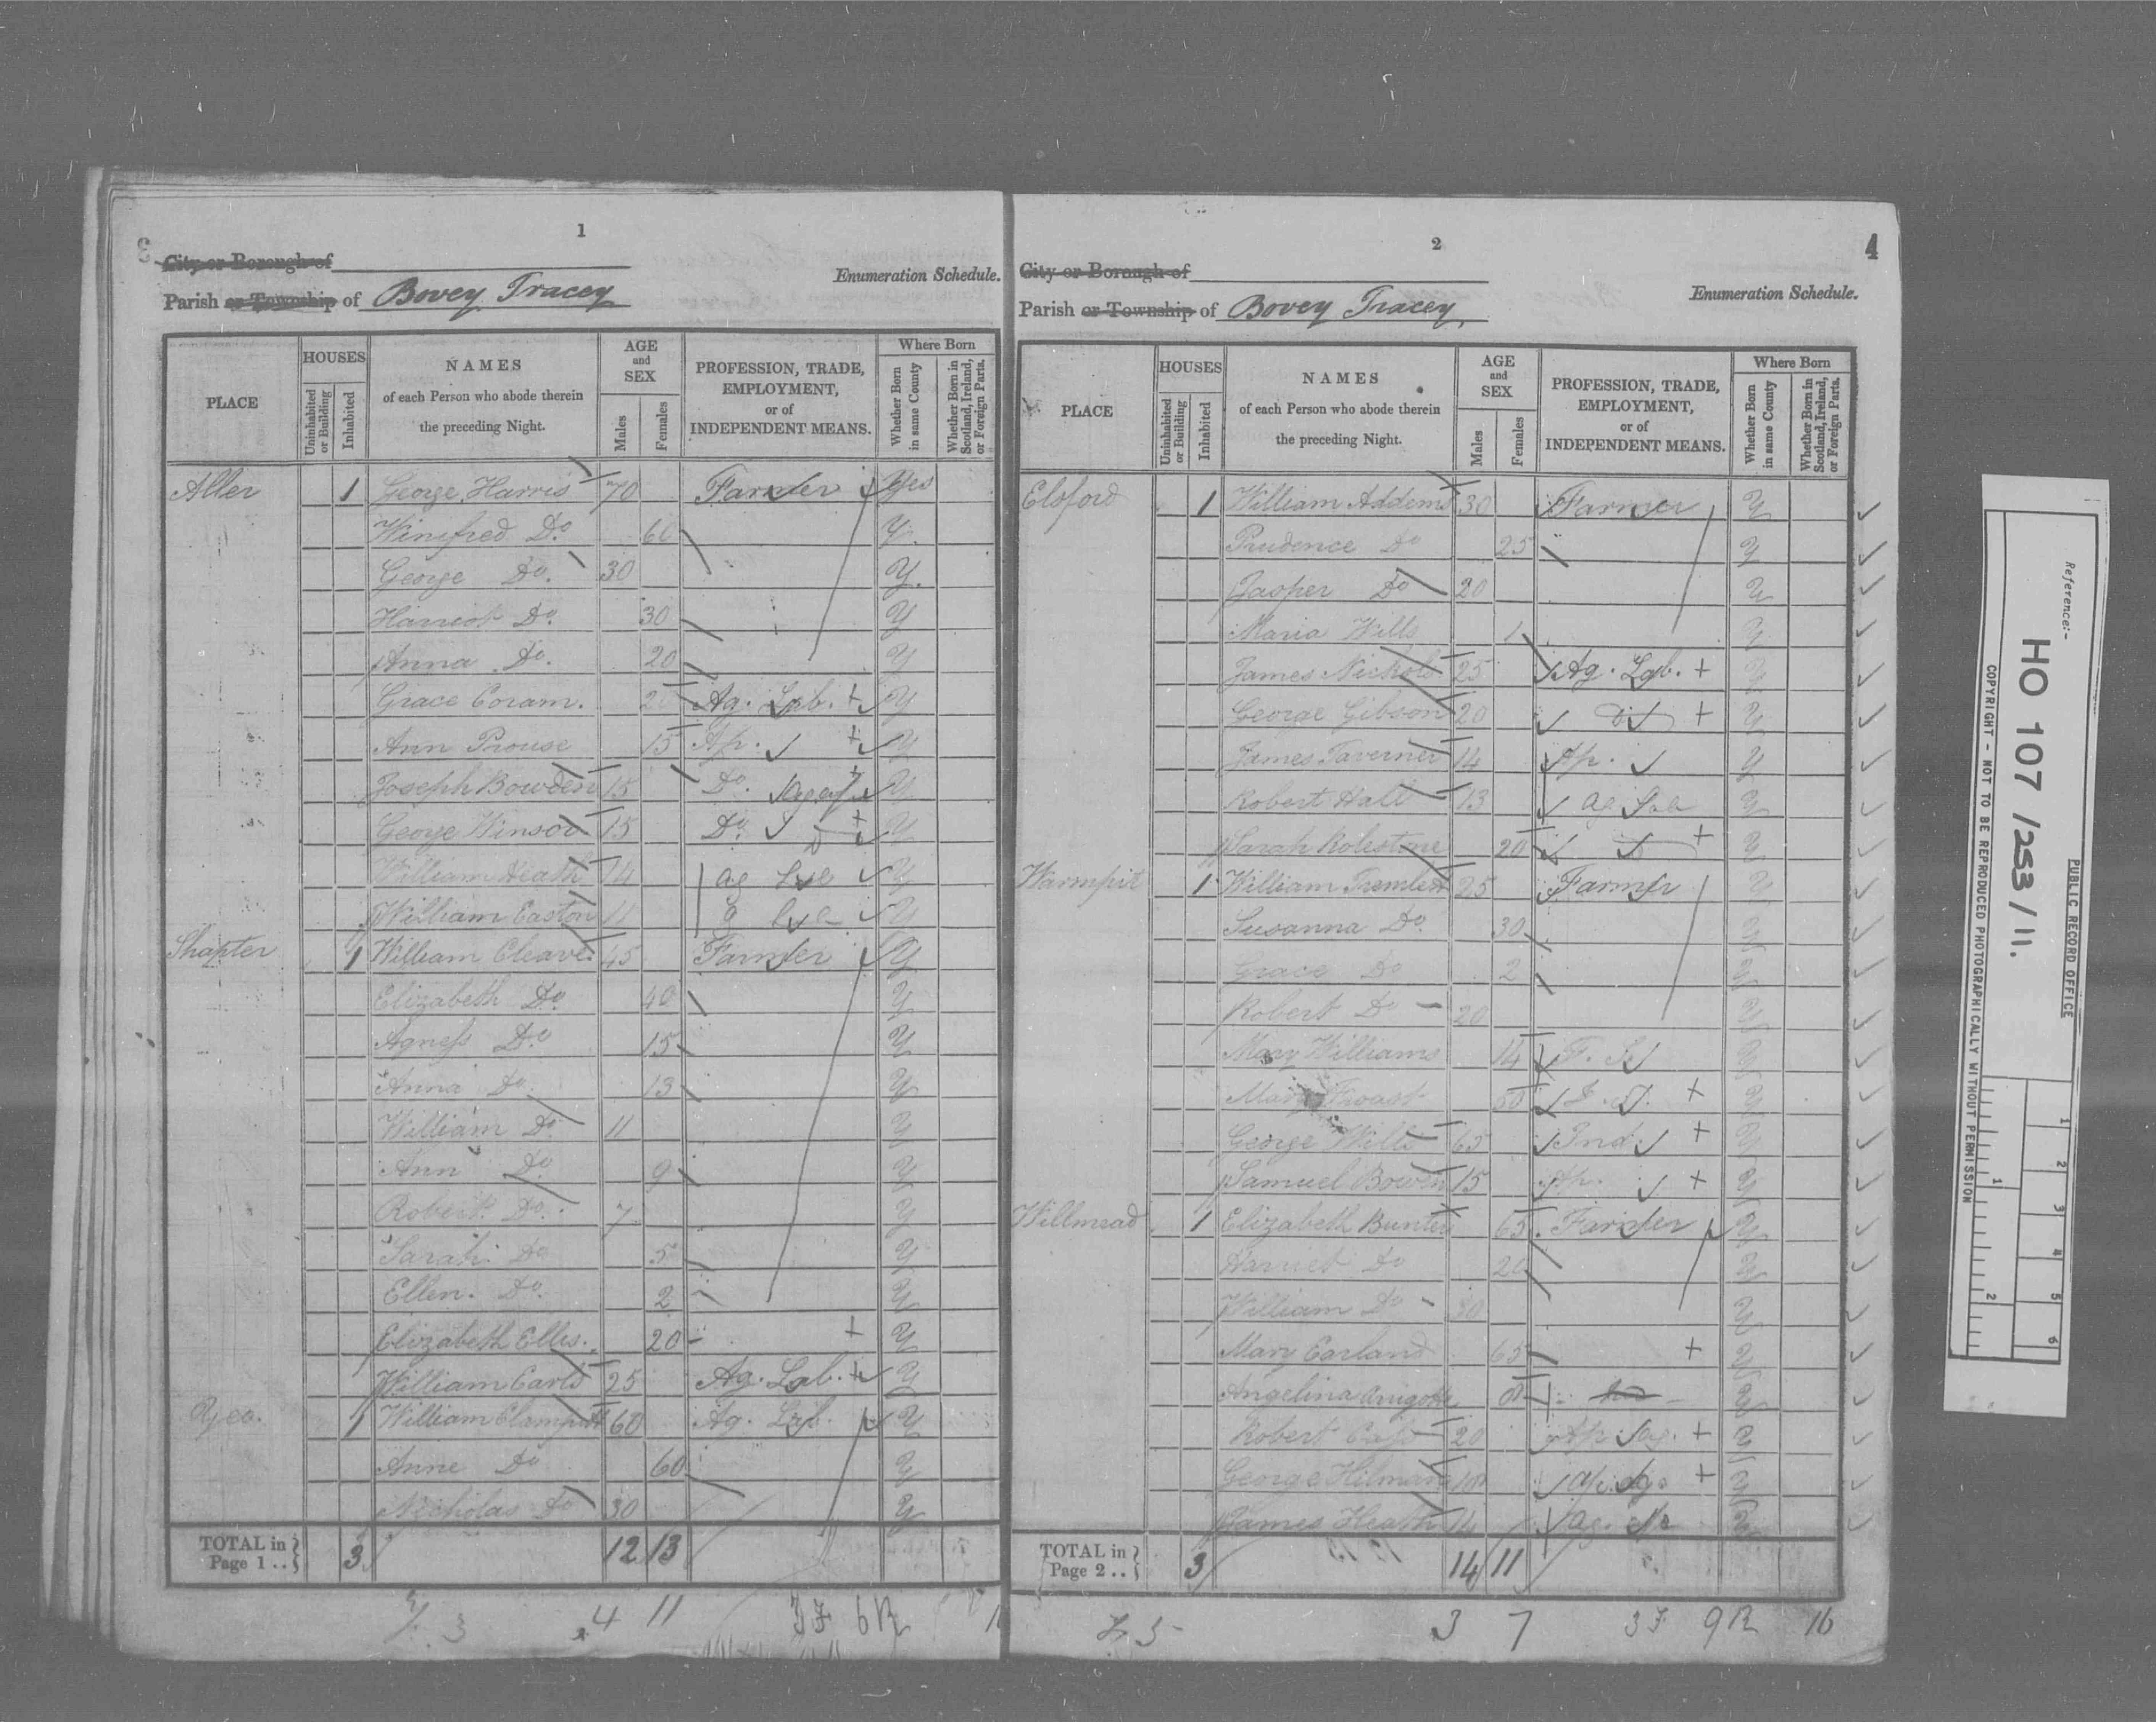 1
City or Borough of
Enumeration Schedule.
Parish or Township of Bovey Tracey
PLACE
HOUSES
Uninhabited or Building
Inhabited
NAMES
of each Person who abode therein
the preceding Night.
AGE and SEX
Males
Females
PROFESSION, TRADE,
EMPLOYMENT,
or of
INDEPENDENT MEANS.
Where Born
Whether Born in same County
Whether Born in Scotland, Ireland, or Foreign Parts.
Aller 1 George Harris 70 Farmer Yes
Winifred Do. 60 Y.
George Do. 30 Y.
Harriot Do. 30 Y
Anna Do. 20 Y
Grace Coram. Ag. Lab. + Y
Ann Prouse 15 Ap. + Y
Joseph Bowden 15 Do. Y
George Winsor 15 Do. + Y
William Heath 14 Ag Y
William Easton 11 Y
Shapter 1 William Cleave 45 Farmer Y
Elizabeth Do. 40 Y
Agness Do. 15 Y
Anna Do. 13 Y
William Do. 11 Y
Ann Do. 9 Y
Robert Do. 7 Y
Sarah Do 5 Y
Ellen. Do. 2 Y
Elizabeth Ellis. 20 + Y
William 25 Ag. Lab. + Y
Yeo. 1 William 60 Ag. Lab. Y
Anne Do 60 Y
Nicholas Do 30 Y
TOTAL in Page 1 .. 3 12 13
3 4 11 6R
2
4
City or Borough of
Enumeration Schedule.
Parish or Township of Bovey Tracey
PLACE
HOUSES
Uninhabited or Building
Inhabited
NAMES
of each Person who abode therein
the preceding Night.
AGE and SEX
Males
Females
PROFESSION, TRADE,
EMPLOYMENT,
or of
INDEPENDENT MEANS.
Where Born
Whether Born in same County
Whether Born in Scotland, Ireland, or Foreign Parts.
Elsford 1 William Addems 30 Farmer Y
Prudence Do 25 Y
Jasper Do 20 Y
Maria Wills 1 Y
James Nichols 25 Ag. Lab. + Y
George Gibson 20 Do + Y
James Taverner 14 Ap. Y
Robert Hall 13 Ag Y
Sarah Rolestone 20 + Y
Warmpit 1 William Tremlett 25 Farmer Y
Susanna Do. 30 Y
Grace Do 2 Y
Robert Do 20 Y
Mary Williams 14 F. S. Y
Mary 50 F. S. + Y
George Wills 65 Ind + Y
Samuel Bowen 15 Ap. + Y
Willmead 1 Elizabeth Bunter 65 Farmer Y
Harriet Do 20 Y
William Do 30 Y
Mary Earland 65 + Y
Angelina Y
Robert 20 Ap. Ag. + Y
George Hilman + Y
James Heath 14 Ag. Y
TOTAL in Page 2 .. 3 14 11
3 7 9R 16
Reference:-
PUBLIC RECORD OFFICE
HO 107 /253 / 11.
COPYRIGHT - NOT TO BE REPRODUCED PHOTOGRAPHICALLY WITHOUT PERMISSION
1 2 3 4 5 6
1 2